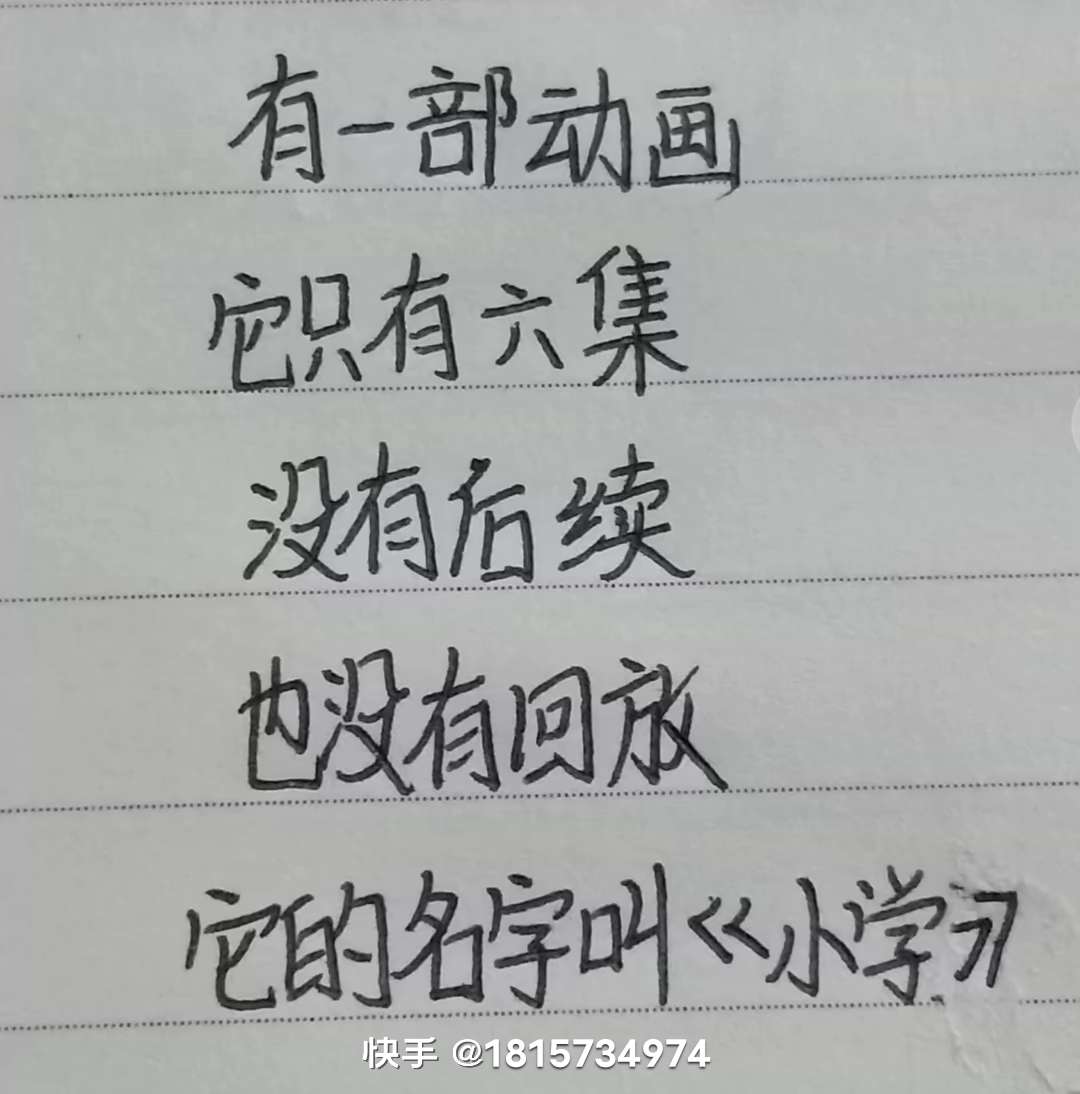 有一部动画
它只有六集
没有后续
也没有回放
它的名字叫《小学》
快手 @1815734974